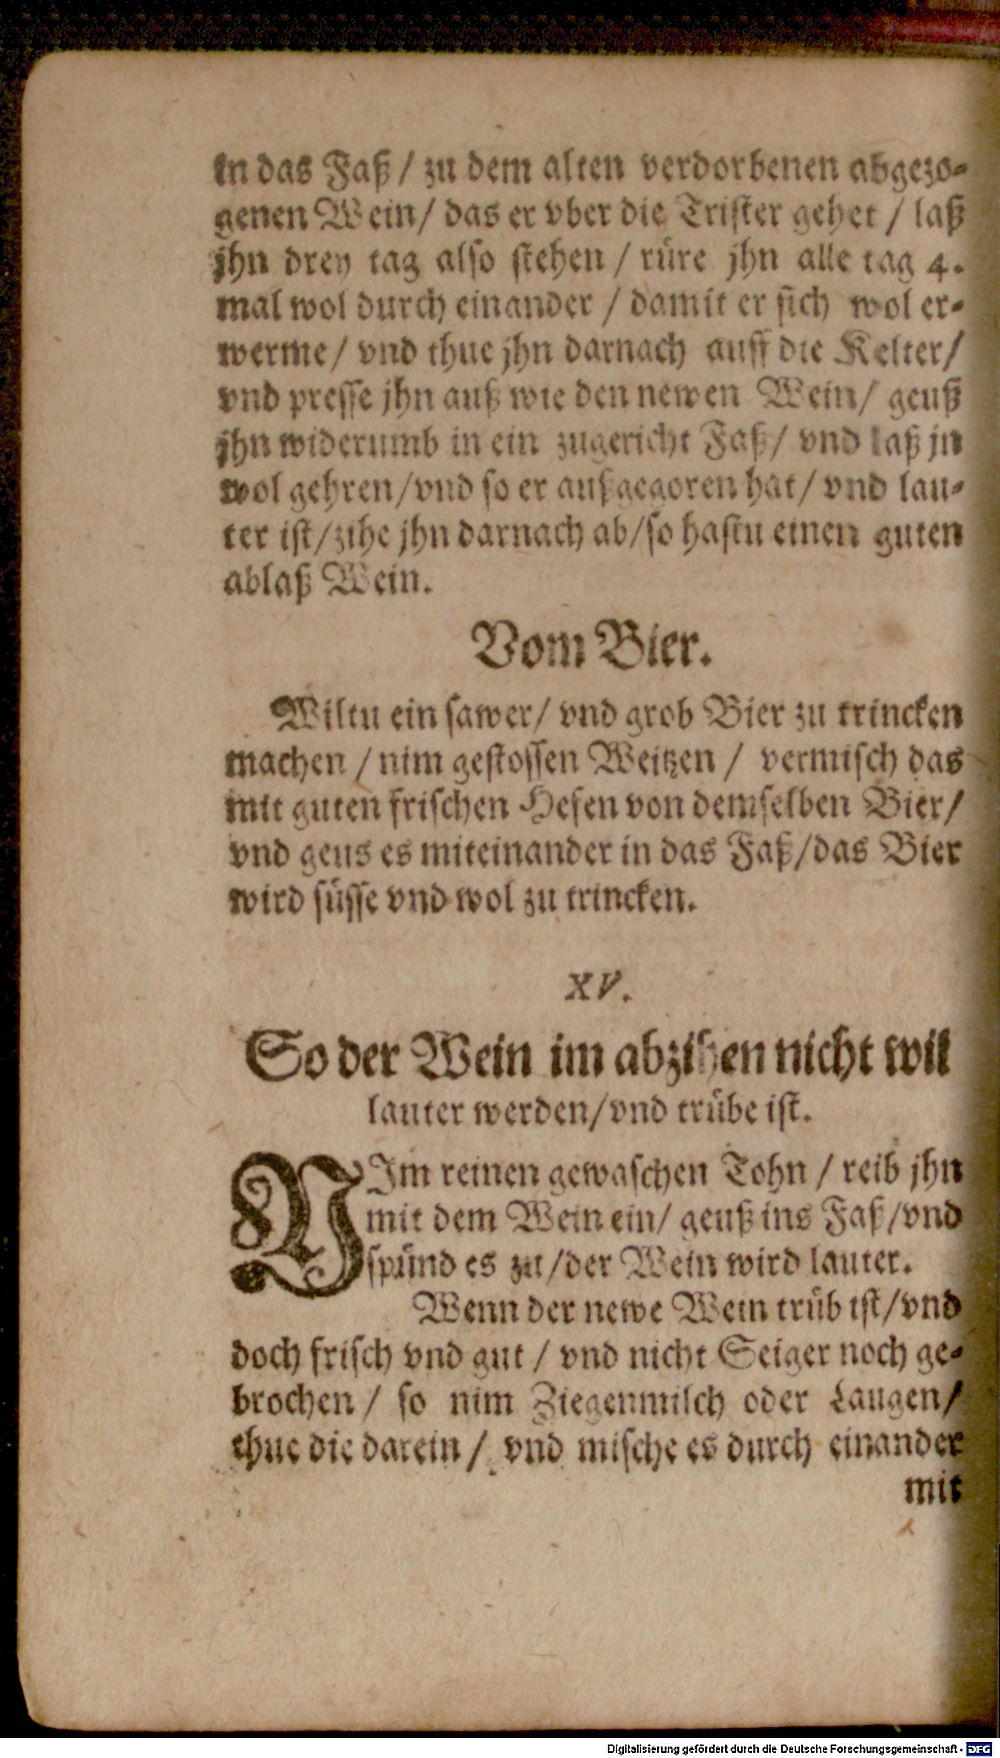 in das Faß / zu dem alten verdorbenen abgezo-
genen Wein / das er vber die Trister gehet / laß
jhn drey tag also stehen / rüre jhn alle tag 4.
mal wol durch einander / damit er sich wol er-
werme / vnd thue jhn darnach auff die Kelter /
vnd presse jhn auß wie den newen Wein / geuß
jhn widerumb in ein zugericht Faß / vnd laß jn
wol gehren / vnd so er außgegoren hat / vnd lau-
ter ist / zihe jhn darnach ab / so hastu einen guten
ablaß Wein.
Vom Bier.
Wiltu ein sawer / vnd grob Bier zu trincken
machen / nim gestossen Weitzen / vermisch das
mit guten frischen Hefen von demselben Bier /
vnd geus es miteinander in das Faß / das Bier
wird süsse vnd wol zu trincken.
XV.
So der Wein im abzihen nicht wil
lauter werden / vnd trübe ist.
NIm reinen gewaschen Tohn / reib jhn
mit dem Wein ein / geuß ins Faß / vnd
spünd es zu / der Wein wird lauter.
Wenn der newe Wein trüb ist / vnd
doch frisch vnd gut / vnd nicht Seiger noch ge-
brochen / so nim Ziegenmilch oder Laugen /
thue die darein / vnd mische es durch einander
mit
Digitalisierung gefördert durch die Deutsche Forschungsgemeinschaft - DFG